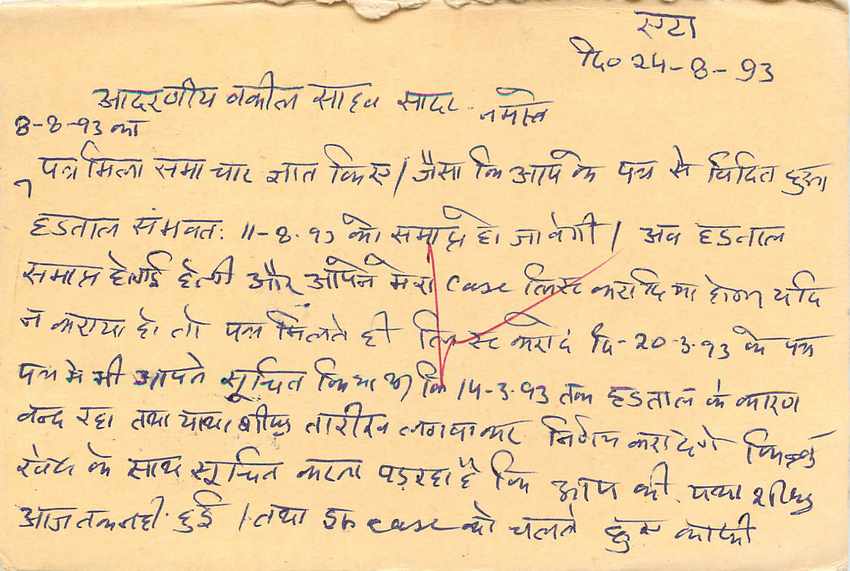 एटा
दि० 24-8-93
आदरणीय वकील साहब सादर नमस्ते
8-8-93 का
पत्र मिला समाचार ज्ञात किए। जैसा कि आप के पत्र से विदित हुआ
हडताल संभवतः 11-8-93 को समाप्त हो जावेगी। अब हडताल
समाप्त हो गई होगी और आपने मेरा case लिस्ट करा दिया होगा यदि
न कराया हो तो पत्र मिलते ही लिस्ट करादें दि-20-3-93 के पत्र
पत्र मे भी आपने सूचित किया था कि 14-3-93 तक हडताल के कारण
बन्द रहा तथा यथा शीघ्र तारीख लगवाकर निर्णय करा देगे किन्तु
खेद के साथ सूचित करना पड़ रहा है कि आप की यथा शीघ्र
आज तक नही हुई। तथा case को चलते हुए काफी